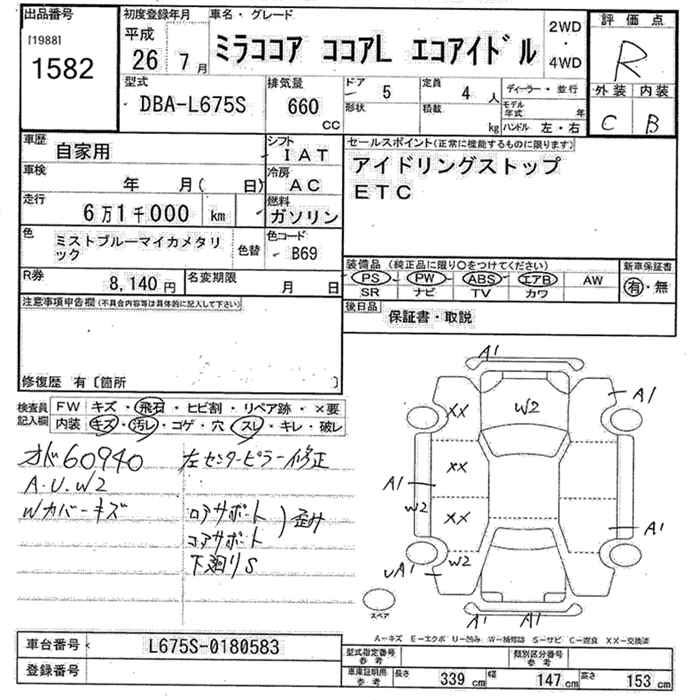 出品番号
[1988]
1582
初度登録年月
平成
26 7月
車名・グレード
ミラココア ココアL エコアイドル
2WD
・
4WD
評価点
R
外装 内装
C B
型式
DBA-L675S
排気量
660
CC
ドア
5
定員
4 人
ディーラー・並行
形状
積載
kg
モデル年式 年
ハンドル 左・右
車歴
自家用
シフト
IAT
セールスポイント(正常に機能するものに限ります)
アイドリングストップ
ETC
車検
年 月( 日)
冷房
AC
走行
6万1千000 km
燃料
ガソリン
色
ミストブルーマイカメタリ
ック
色替
色コード
B69
R券
8,140円
名変期限
月 日
装備品 (純正品に限り○をつけてください)
PS PW ABS エアB AW
SR ナビ TV カワ
新車保証書
有・無
注意事項申告欄(不具合内容等は具体的に記入して下さい)
後日品
保証書・取説
修復歴 有〔箇所
検査員
記入欄
FW キズ・飛石・ヒビ割・リペア跡・×要
内装 キズ・汚レ・コゲ・穴・スレ・キレ・破レ
オド60940
A.U.W2
Wカバーキズ
左センターピラー修正
ロアサポート
コアサポート
)歪み
下廻りS
A1
XX
W2
A1
XX
A1
W2
XX
A1
UA1
W2
A1 A1
スペア
A-キズ E-エクボ U-凹み W-補修跡 S-サビ C-腐食 XX-交換済
車台番号
L675S-0180583
登録番号
型式指定番号
参考
類別区分番号
参考
車庫証明用
参考
長さ 339 cm
幅 147 cm
高さ 153 cm